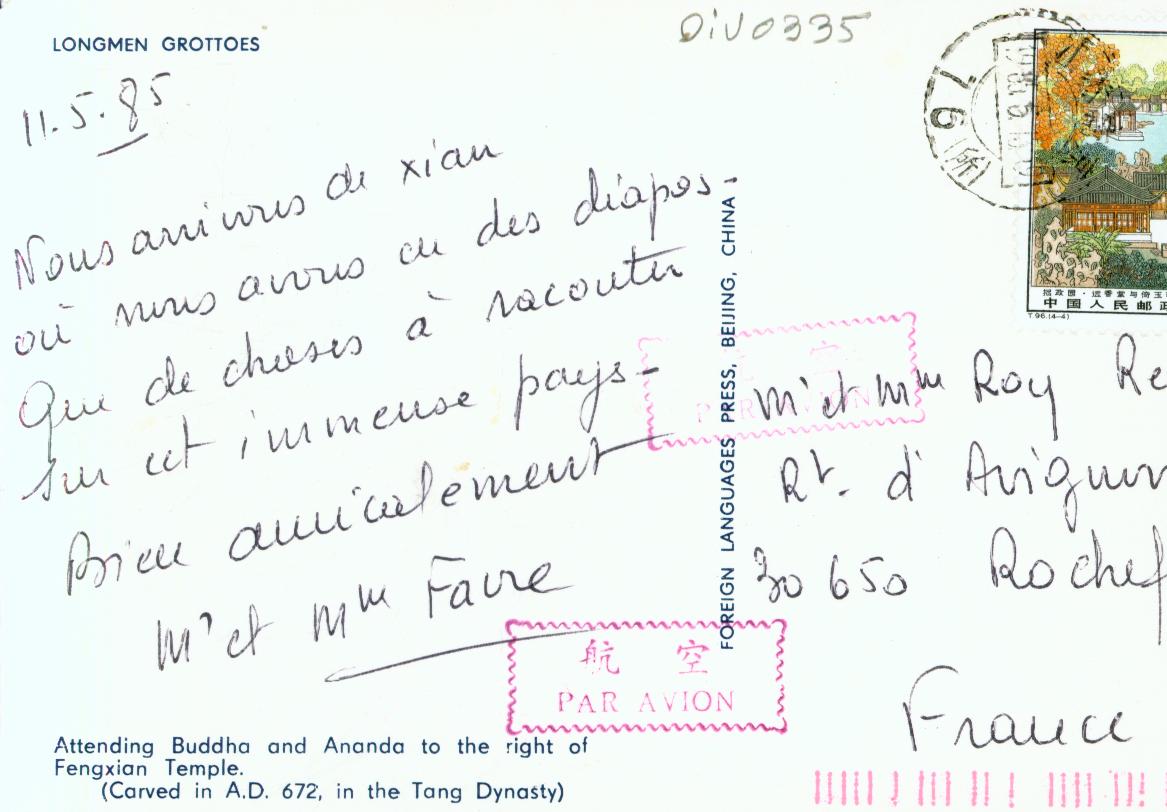 LONGMEN GROTTOES
OiV0335
11.5.85
Nous arrivons de xian
où nous avons eu des diapos-
Que de choses à raconter
sur cet immense pays-
Bien amicalement
Mr et Mme Favre
Attending Buddha and Ananda to the right of
Fengxian Temple.
(Carved in A.D. 672, in the Tang Dynasty)
FOREIGN LANGUAGES PRESS, BEIJING, CHINA
航 空
PAR AVION
空
PAR AVION
中国人民邮政
T.96.(4-4)
Mr et Mme Roy Re
Rt. d'Avignon
30650 Rochef
France